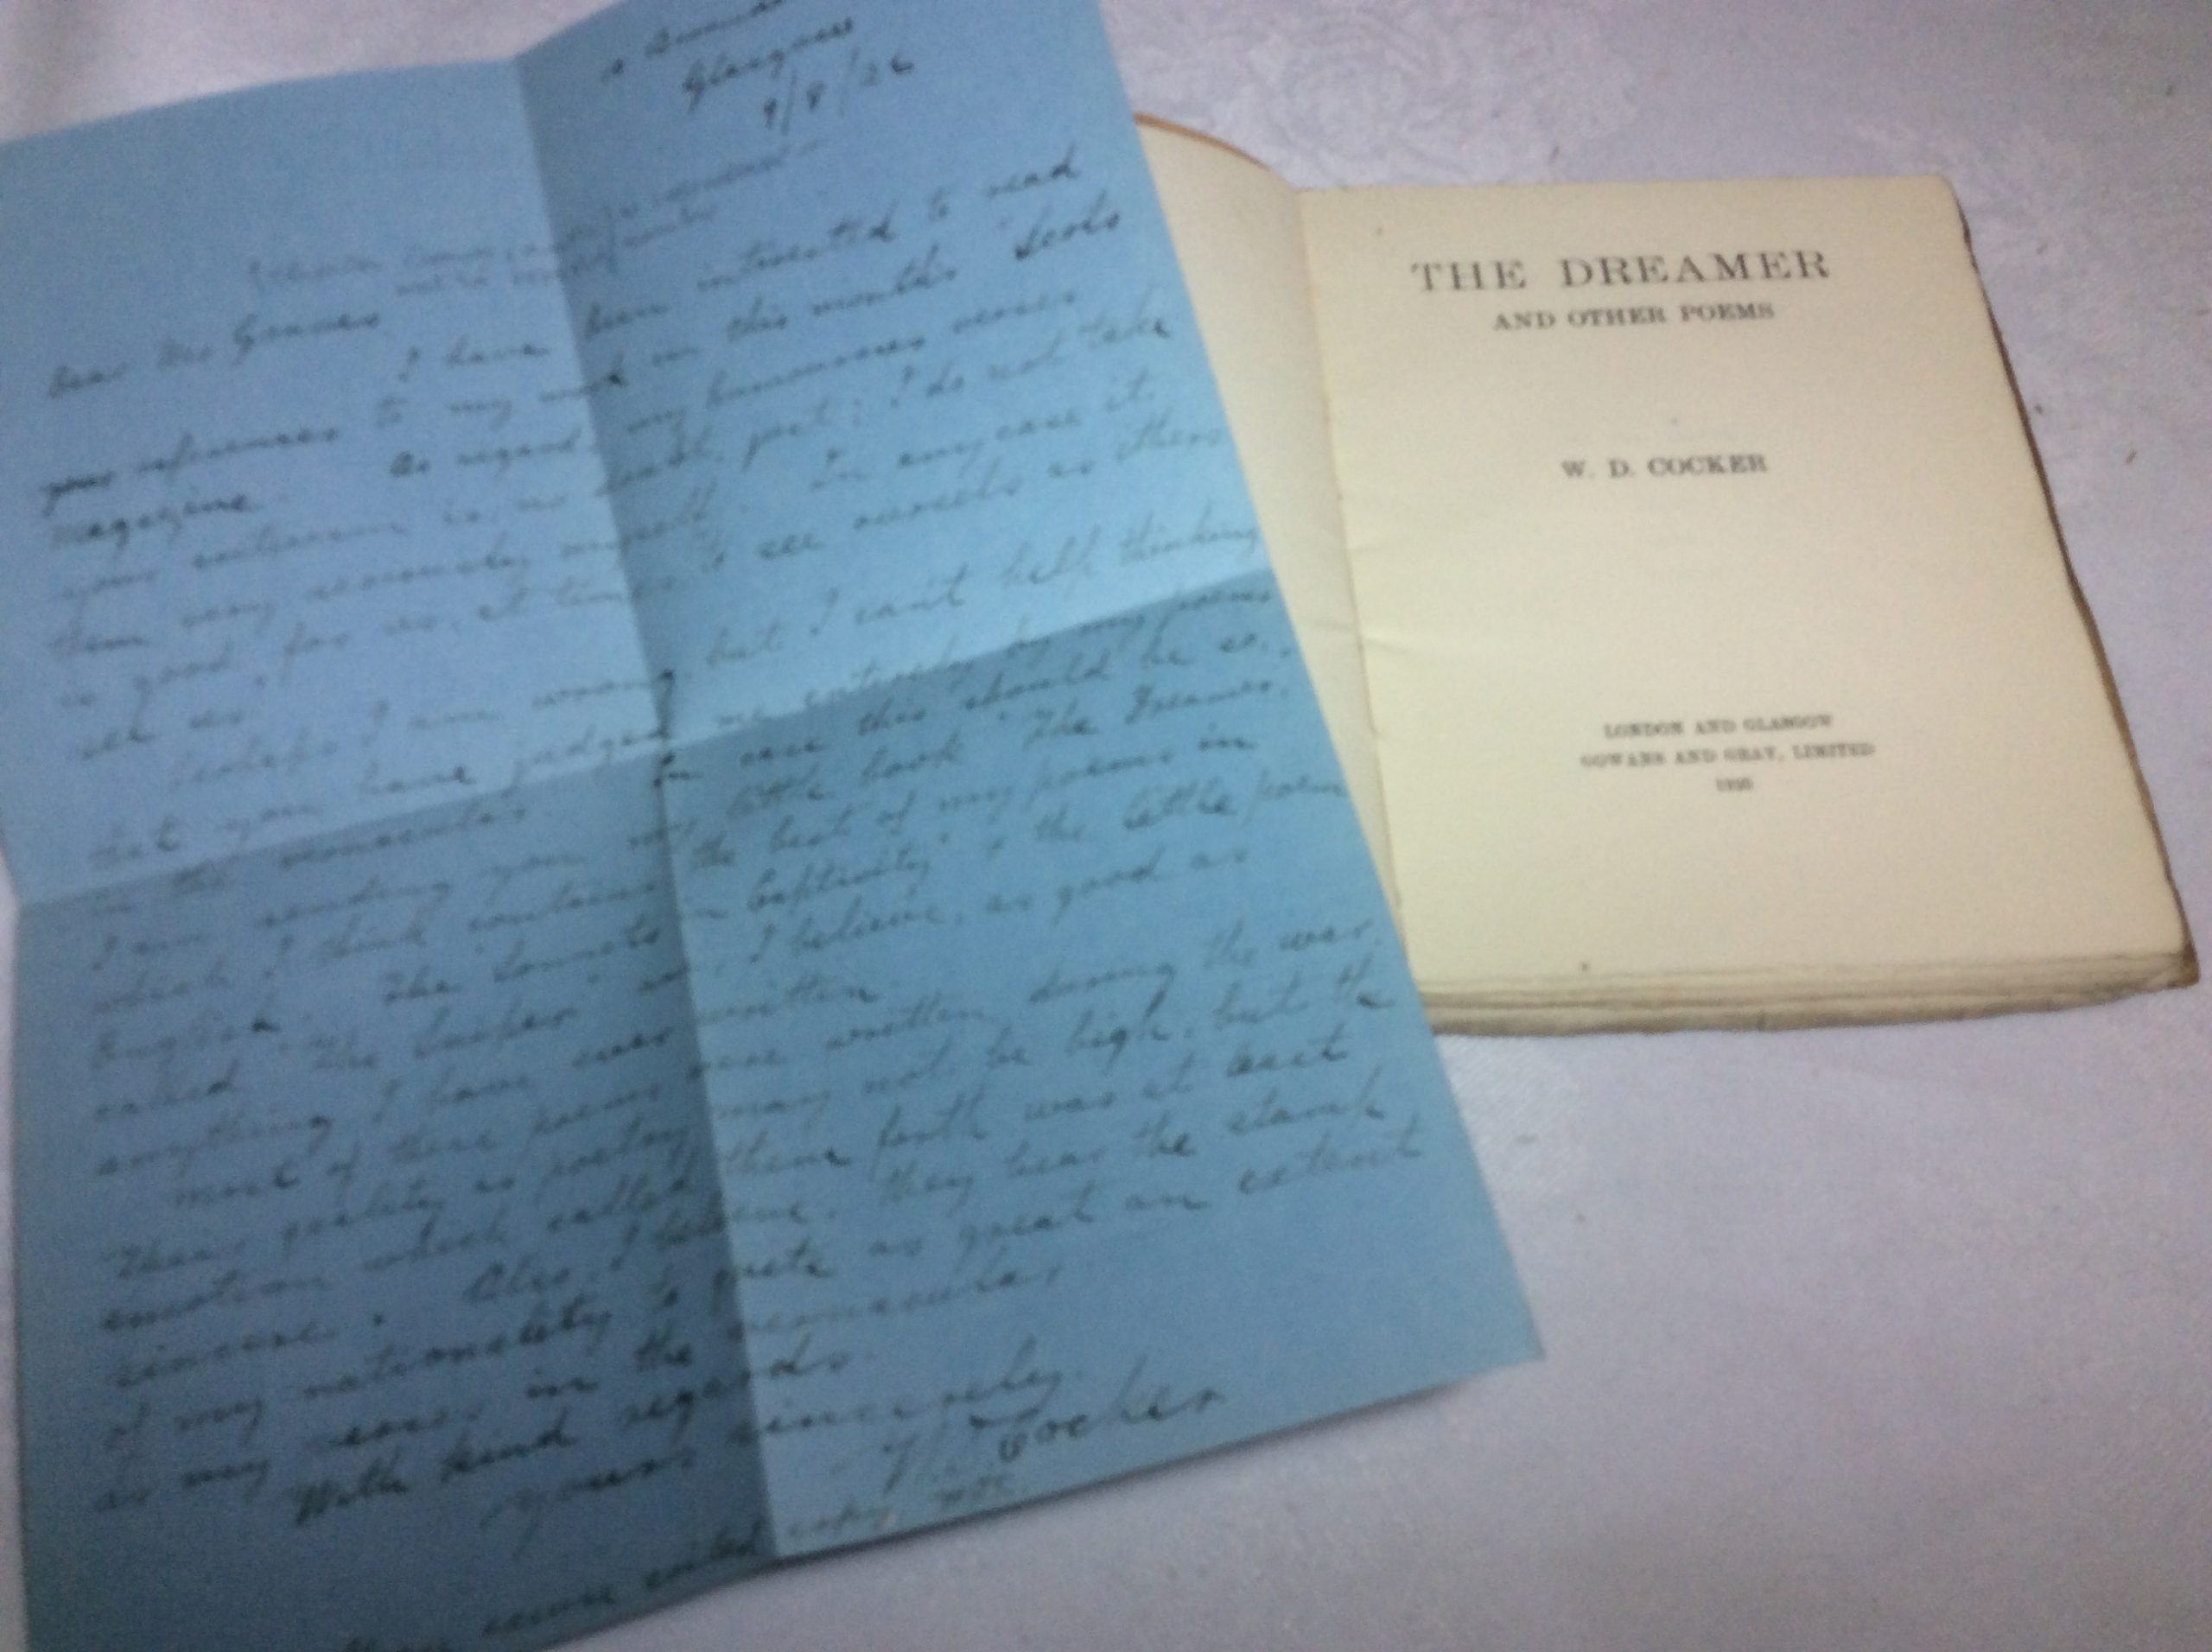 Glasgow
9/8/26
Dear Mr Graves
I have been interested to read
your references to my work in this month's "Scots
Magazine". As regards my humorous verses
your criticism is, no doubt, just; I do not take
them very seriously myself. In any case it
is good for us, at times, to see oursels as ithers
see us.
Perhaps I am wrong, but I can't help thinking
that you have judged me entirely by my poems
in the vernacular. In case this should be so,
I am sending you my little book "The Dreamer,
which I think contains the best of my poems in
English. The "Sonnets in Captivity" & the little poem
called "The" are, I believe, as good as
anything I have ever written.
Most of these poems were written during the war.
Their quality as poetry may not be high, but the
emotion which called them forth was at least
sincere. Also, I believe, they bear the stamp
of my nationality to quite as great an extent
as my in the vernacular.
With kind regards.
Yours sincerely,
W. D. Cocker
excuse soiled copy,
THE DREAMER
AND OTHER POEMS
W. D. COCKER
LONDON AND GLASGOW
GOWANS AND GRAY, LIMITED
1920